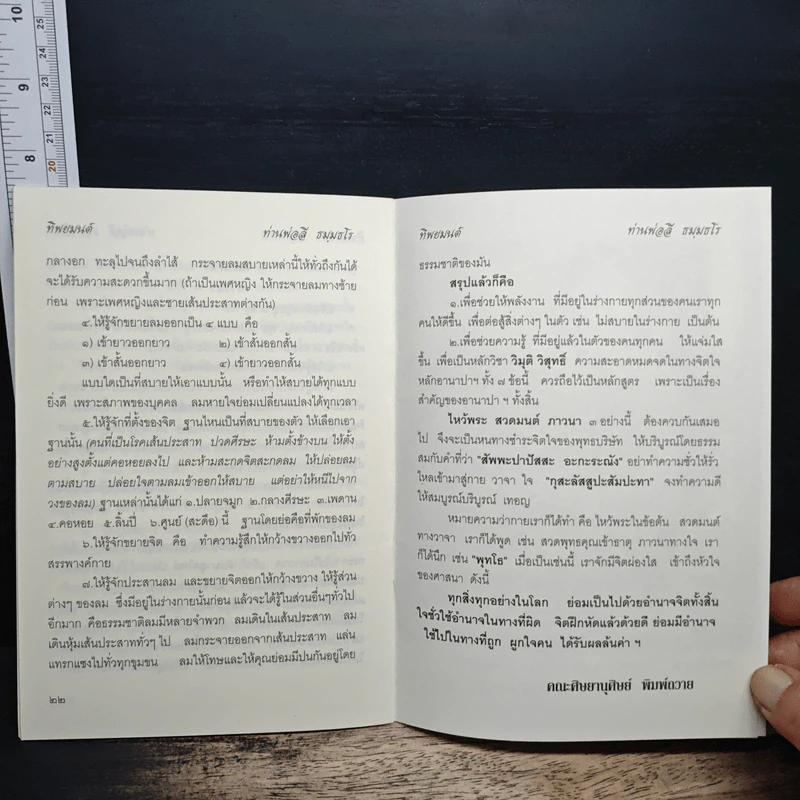 10
9
8
25
24
23
22
21
20
ทิพยมนต์ ท่านพ่อลี ธมฺมธโร
กลางอก ทะลุไปจนถึงลำไส้ กระจายลมสบายเหล่านี้ให้ทั่วถึงกันได้
จะได้รับความสะดวกขึ้นมาก (ถ้าเป็นเพศหญิง ให้กระจายลมทางซ้าย
ก่อน เพราะเพศหญิงและชายเส้นประสาทต่างกัน)
๔.ให้รู้จักขยายลมออกเป็น ๔ แบบ คือ
๑) เข้ายาวออกยาว ๒) เข้าสั้นออกสั้น
๓) เข้าสั้นออกยาว ๔) เข้ายาวออกสั้น
แบบใดเป็นที่สบายให้เอาแบบนั้น หรือทำให้สบายได้ทุกแบบ
ยิ่งดี เพราะสภาพของบุคคล ลมหายใจย่อมเปลี่ยนแปลงได้ทุกเวลา
๕.ให้รู้จักที่ตั้งของจิต ฐานไหนเป็นที่สบายของตัว ให้เลือกเอา
ฐานนั้น (คนที่เป็นโรคเส้นประสาท ปวดศีรษะ ห้ามตั้งข้างบน ให้ตั้ง
อย่างสูงตั้งแต่คอหอยลงไป และห้ามสะกดจิตสะกดลม ให้ปล่อยลม
ตามสบาย ปล่อยใจตามลมเข้าออกให้สบาย แต่อย่าให้หนีไปจาก
วงของลม) ฐานเหล่านั้นได้แก่ ๑.ปลายจมูก ๒.กลางศีรษะ ๓.เพดาน
๔.คอหอย ๕.ลิ้นปี่ ๖.ศูนย์ (สะดือ) นี้ ฐานโดยย่อคือที่พักของลม
๖.ให้รู้จักขยายจิต คือ ทำความรู้สึกให้กว้างขวางออกไปทั่ว
สรรพางค์กาย
๗.ให้รู้จักประสานลม และขยายจิตออกให้กว้างขวาง ให้รู้ส่วน
ต่างๆ ของลม ซึ่งมีอยู่ในร่างกายนั้นก่อน แล้วจะได้รู้ในส่วนอื่นๆทั่วไป
อีกมาก คือธรรมชาติลมมีหลายจำพวก ลมเดินในเส้นประสาท ลม
เดินหุ้มเส้นประสาททั่วๆ ไป ลมกระจายออกจากเส้นประสาท แล่น
แทรกแซงไปทั่วทุกขุมขน ลมให้โทษและให้คุณย่อมมีปนกันอยู่โดย
๒๒
ทิพยมนต์ ท่านพ่อลี ธมฺมธโร
ธรรมชาติของมัน
สรุปแล้วก็คือ
๑.เพื่อช่วยให้พลังงาน ที่มีอยู่ในร่างกายทุกส่วนของคนเราทุก
คนให้ดีขึ้น เพื่อต่อสู้สิ่งต่างๆ ในตัว เช่น ไม่สบายในร่างกาย เป็นต้น
๒.เพื่อช่วยความรู้ ที่มีอยู่แล้วในตัวของคนทุกคน ให้แจ่มใส
ขึ้น เพื่อเป็นหลักวิชา วิมุติ วิสุทธิ์ ความสะอาดหมดจดในทางจิตใจ
หลักอานาปาฯ ทั้ง ๗ ข้อนี้ ควรถือไว้เป็นหลักสูตร เพราะเป็นเรื่อง
สำคัญของอานาปา ฯ ทั้งสิ้น
ไหว้พระ สวดมนต์ ภาวนา ๓ อย่างนี้ ต้องควบกันเสมอ
ไป จึงจะเป็นหนทางชำระจิตใจของพุทธบริษัท ให้บริบูรณ์โดยธรรม
สมกับคำที่ว่า "สัพพะปาปัสสะ อะกะระณัง" อย่าทำความชั่วให้รั่ว
ไหลเข้ามาสู่กาย วาจา ใจ "กุสะลัสสูปะสัมปะทา" จงทำความดี
ให้สมบูรณ์บริบูรณ์ เทอญ
หมายความว่ากายเราก็ได้ทำ คือ ไหว้พระในข้อต้น สวดมนต์
ทางวาจา เราก็ได้พูด เช่น สวดพุทธคุณเข้าธาตุ ภาวนาทางใจ เรา
ก็ได้นึก เช่น "พุทโธ" เมื่อเป็นเช่นนี้ เราจักมีจิตผ่องใส เข้าถึงหัวใจ
ของศาสนา ดังนี้
ทุกสิ่งทุกอย่างในโลก ย่อมเป็นไปด้วยอำนาจจิตทั้งสิ้น
ใจชั่วใช้อำนาจในทางที่ผิด จิตฝึกหัดแล้วด้วยดี ย่อมมีอำนาจ
ใช้ไปในทางที่ถูก ผูกใจคน ได้รับผลล้นค่า ฯ
คณะศิษยานุศิษย์ พิมพ์ถวาย